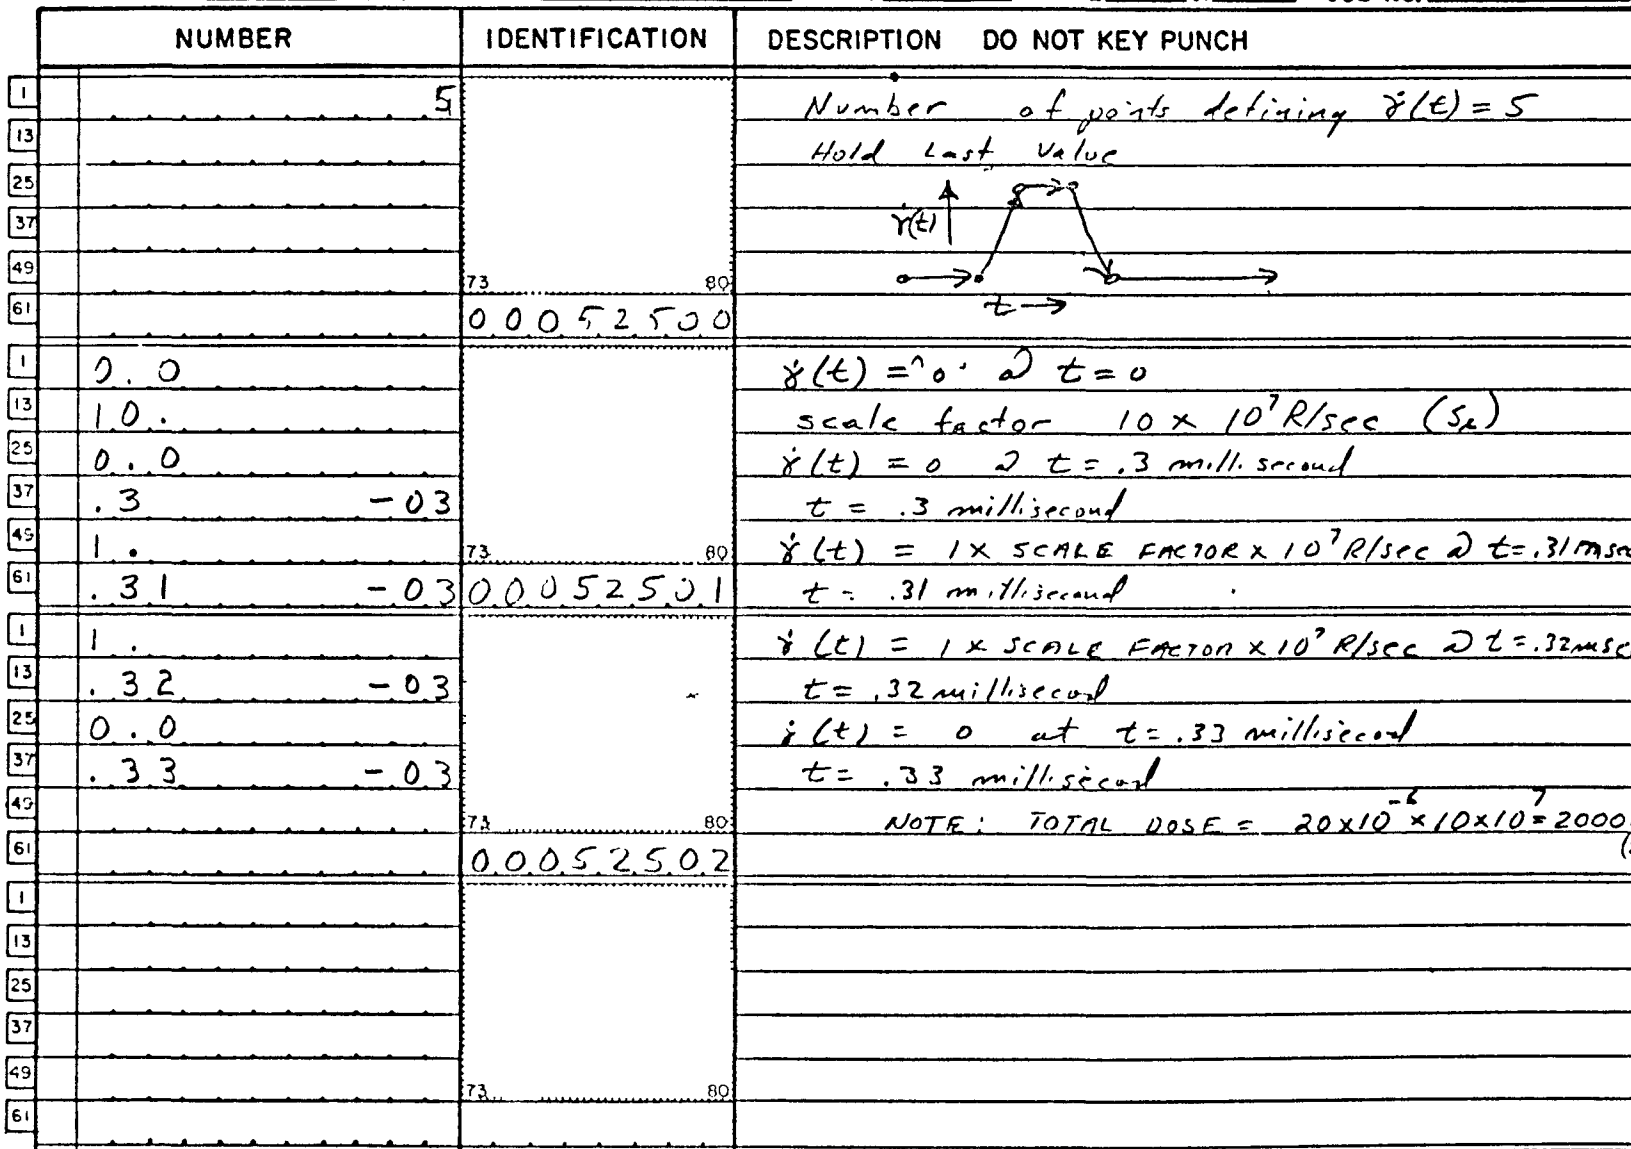 NUMBER IDENTIFICATION DESCRIPTION DO NOT KEY PUNCH
1 5 Number of points defining γ̇(t) = 5
13 Hold Last Value
25
37 γ̇(t)
49 73 80
61 00052500 t →
1 0.0 γ̇(t) = "0" @ t = 0
13 10. scale factor 10 × 10⁷ R/sec
25 0.0 γ̇(t) = 0 @ t = .3 millisecond
37 .3 -03 t = .3 millisecond
49 1. 73 80 γ̇(t) = 1 × SCALE FACTOR × 10⁷ R/sec @ t = .31 msec
61 .31 -03 00052501 t = .31 millisecond
1 1. γ̇(t) = 1 × SCALE FACTOR × 10⁷ R/sec @ t = .32 msec
13 .32 -03 t = .32 millisecond
25 0.0 γ̇(t) = 0 at t = .33 millisecond
37 .33 -03 t = .33 millisecond
49 73 80 NOTE: TOTAL DOSE = 20×10⁻⁶×10×10⁷=2000
61 00052502
1
13
25
37
49 73 80
61